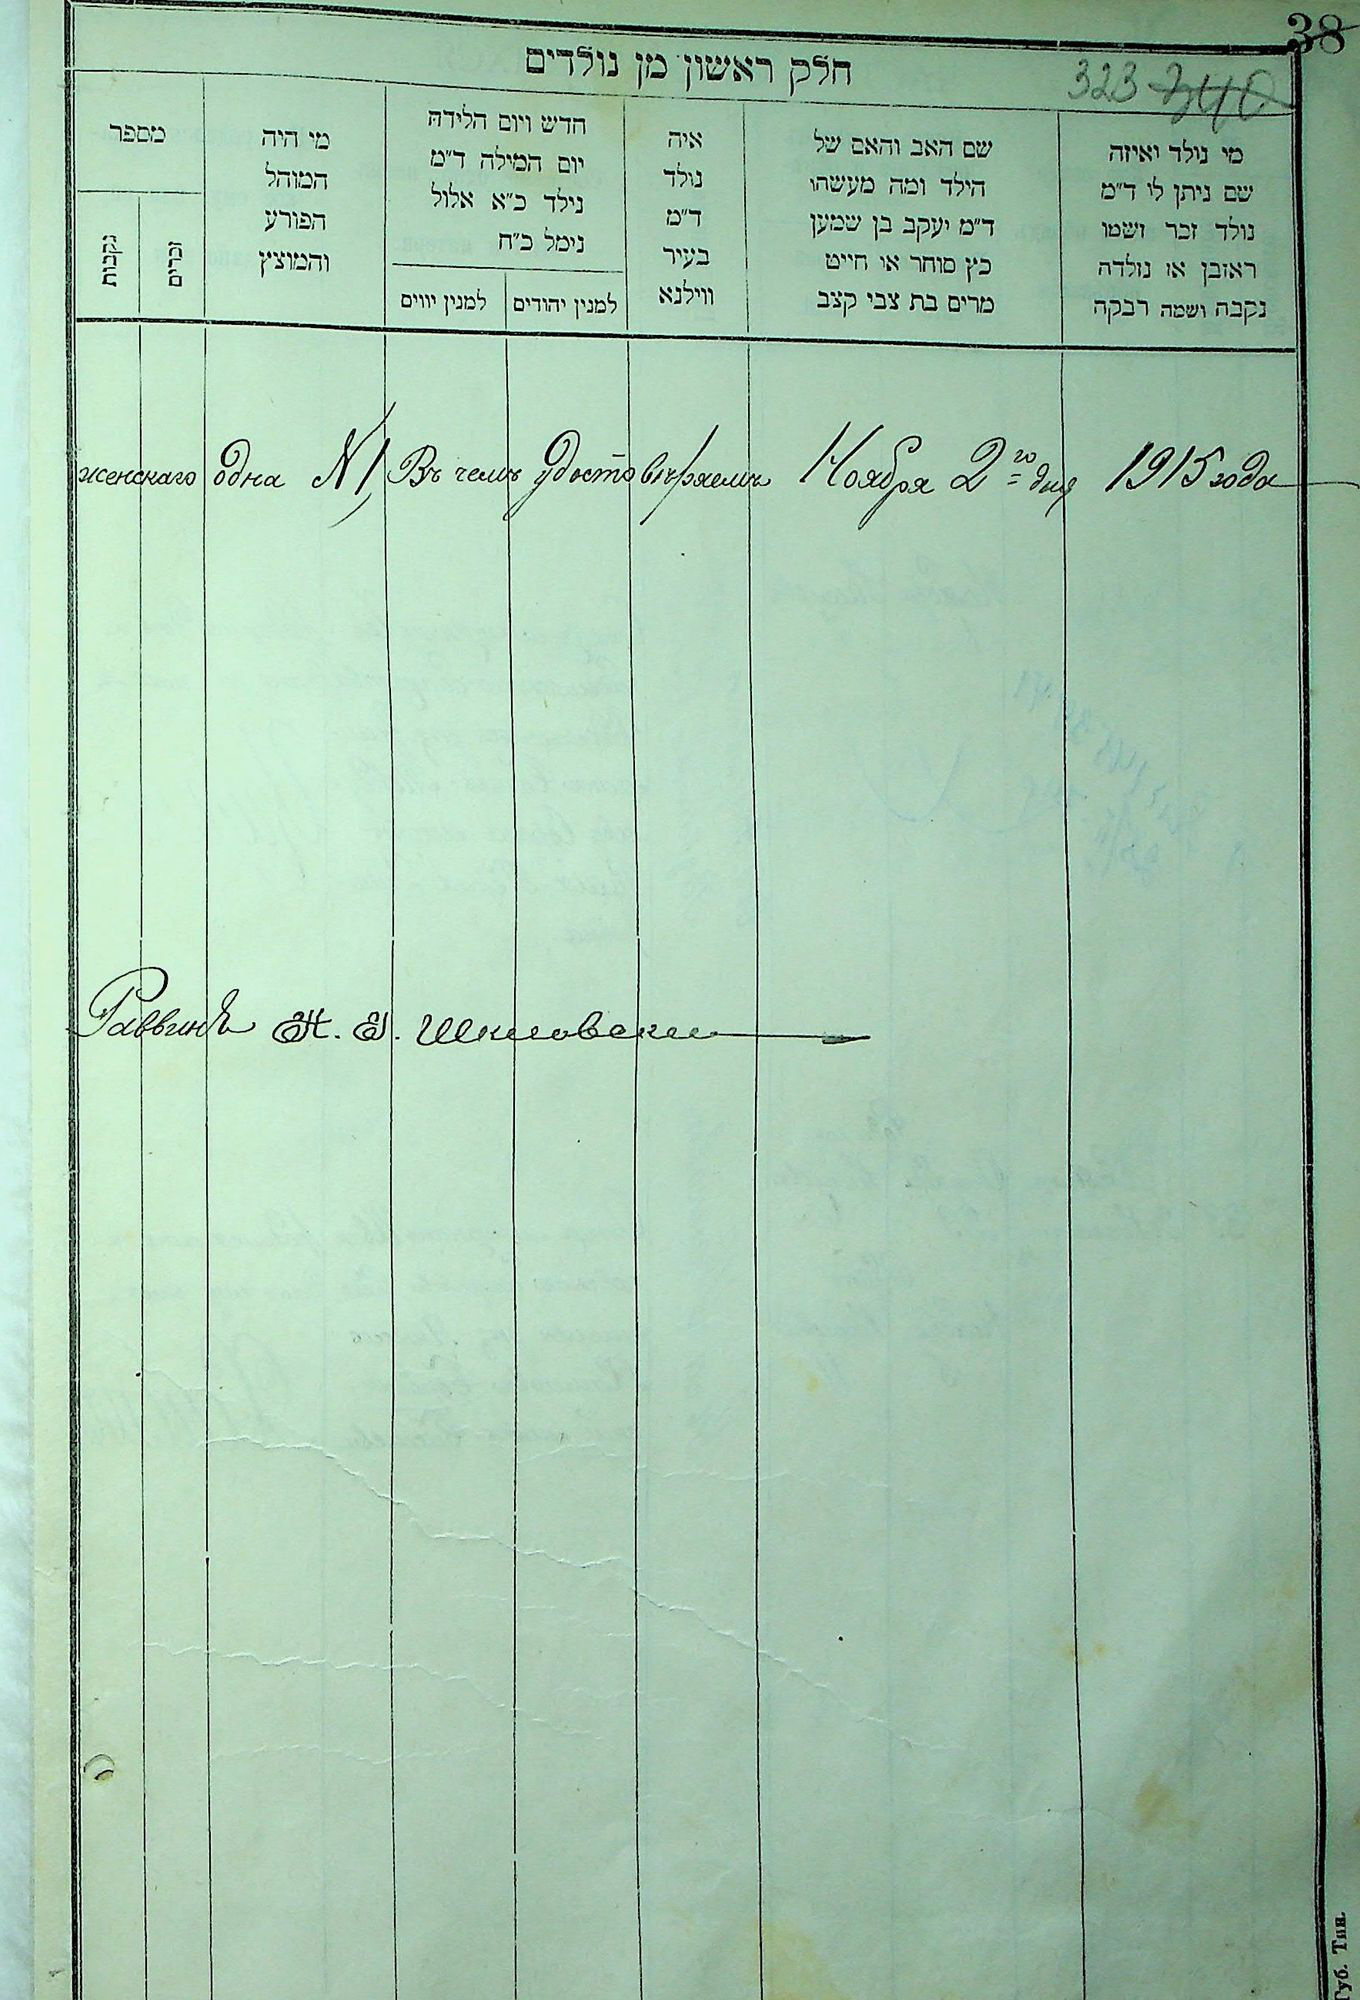 38
חלק ראשון מן נולדים
323 340
מי נולד ואיזה
שם ניתן לו ד״מ
נולד זכר ושמו
ראובן או נולדה
נקבה ושמה רבקה
שם האב והאם של
הילד ומה מעשהו
ד״מ יעקב בן שמעון
כץ סוחר או חייט
מרים בת צבי קצב
איה
נולד
ד״מ
בעיר
ווילנא
חדש ויום הלידה
יום המילה ד״מ
נילד כ״א אלול
נימל כ״ח
למנין יהודים
למנין יווים
מי היה
המוהל
הפורע
והמוצץ
מספר
זכרים
נקבות
женскаго одна №1, Въ чемъ удостовѣряемъ Ноября 2го дня 1915 года
Раввинъ Шкловски
Губ. Тип.